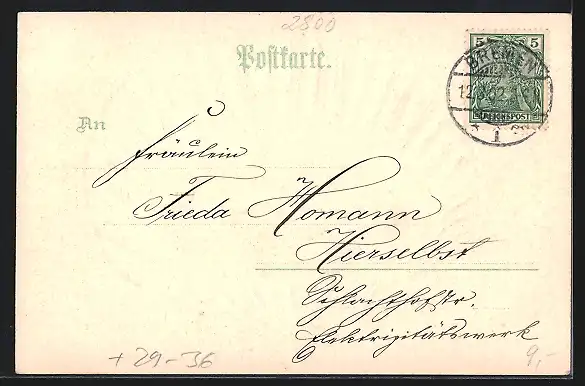 2800
Postkarte.
5 5
BREMEN
REICHSPOST
* 1
An
Fräulein
Frieda Homann
Hierselbst
Schlachthofstr.
Elektrizitätswerk
+ 29-36
9,-